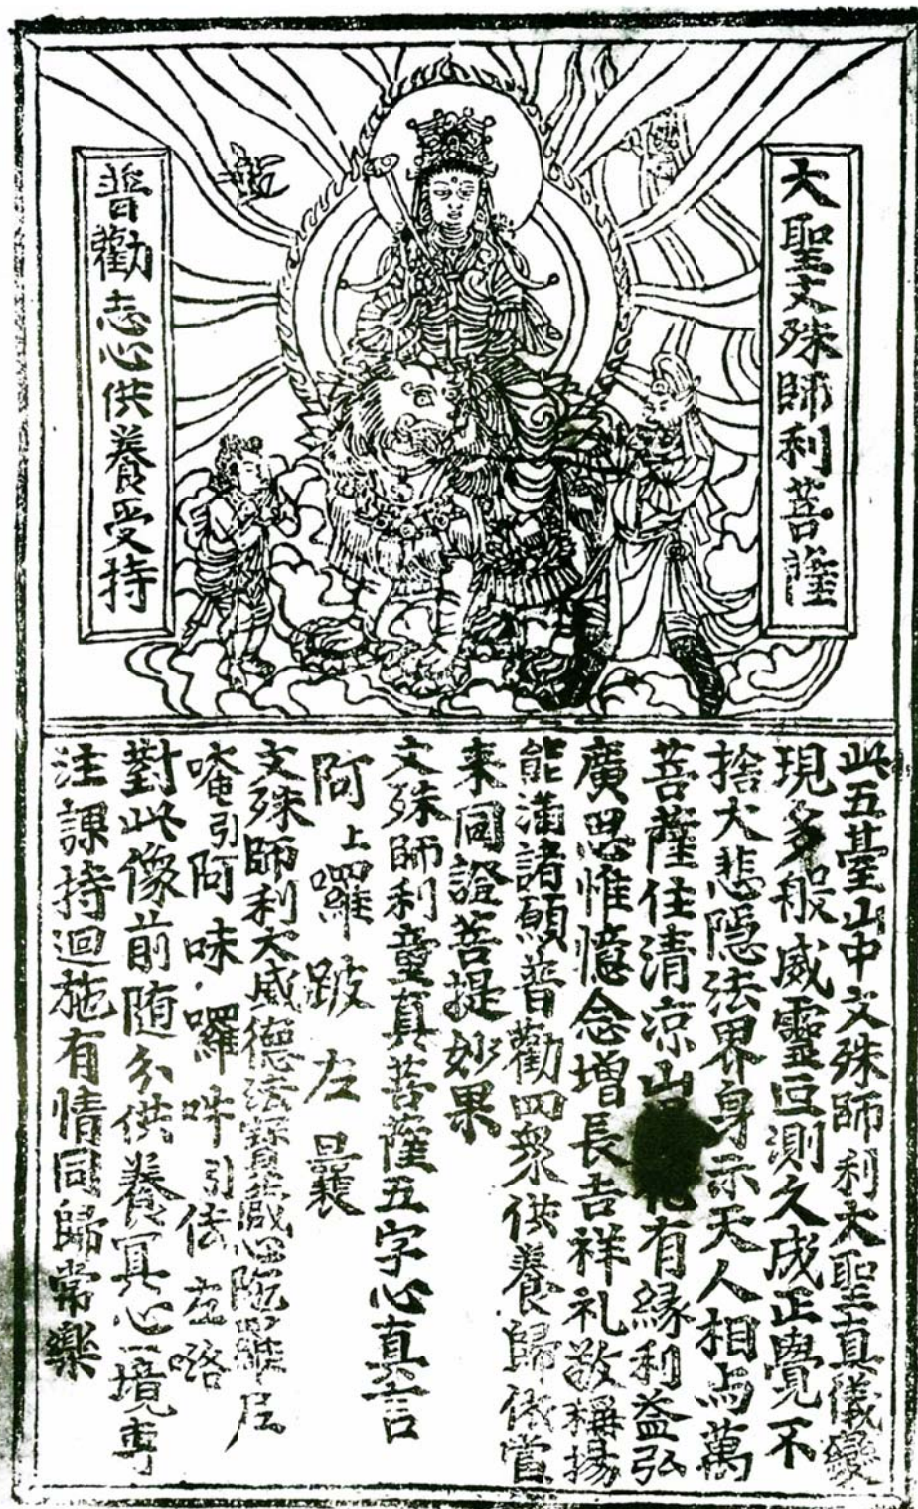 大聖文殊師利菩薩
普勸志心供養受持
此五臺山中文殊師利大聖真儀變
現多般威靈叵測久成正覺不
捨大悲隱法界身示天人相与萬
菩薩住清凉山化有緣利益弘
廣思惟憶念增長吉祥礼敬稱揚
能滿諸願普勸四衆供養歸依當
來同證菩提妙果
文殊師利童真菩薩五字心真言
阿上囉跛左曩
文殊師利大威德法寶藏心陀羅尼
唵引阿味囉吽引佉左咯
對此像前随分供養冥心一境專
注課持迴施有情同歸常樂